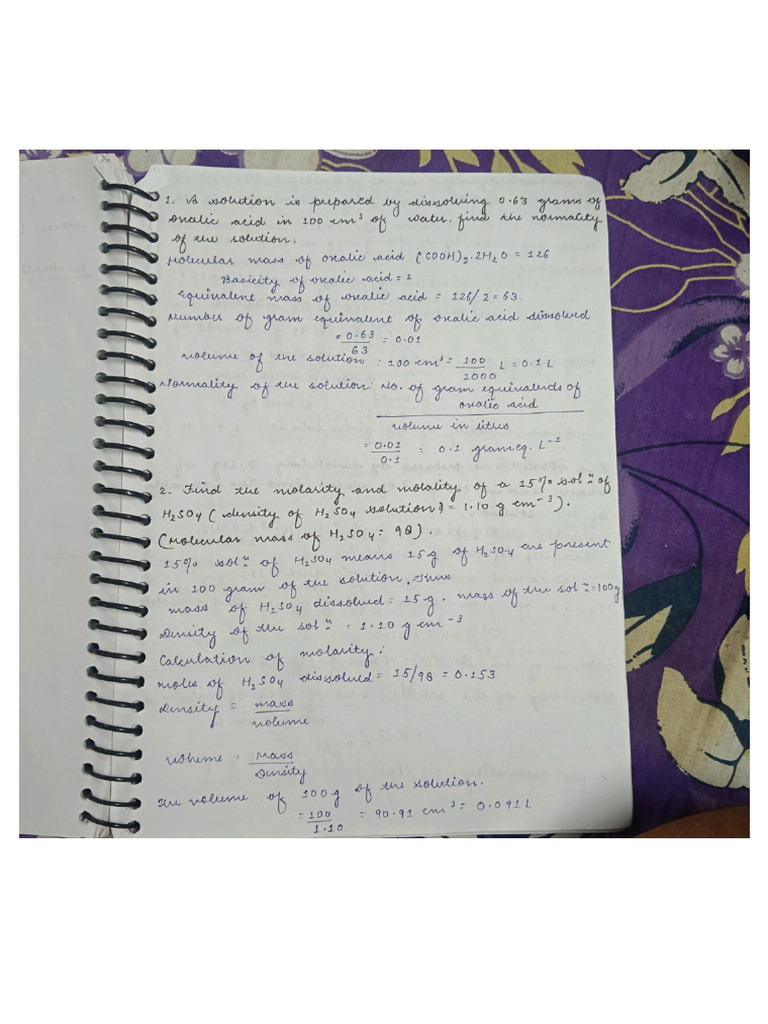 1. A solution is prepared by dissolving 0.63 grams of
oxalic acid in 100 cm³ of water. find the normality
of the solution.
Molecular mass of oxalic acid (COOH)₂.2H₂O = 126
Basicity of oxalic acid = 2
Equivalent mass of oxalic acid = 126/2 = 63.
Number of gram equivalent of oxalic acid dissolved
= 0.63/63 = 0.01
Volume of the solution : 100 cm³ = 100/1000 L = 0.1 L
Normality of the solution: No. of gram equivalents of
oxalic acid
volume in litres
= 0.01/0.1 = 0.1 gram eq. L⁻¹
2. Find the molarity and molality of a 15% solⁿ of
H₂SO₄ (density of H₂SO₄ solution = 1.10 g cm⁻³).
(Molecular mass of H₂SO₄ = 98).
15% solⁿ of H₂SO₄ means 15g of H₂SO₄ are present
in 100 gram of the solution, Thus
mass of H₂SO₄ dissolved = 15 g. mass of the solⁿ = 100g
Density of the solⁿ = 1.10 g cm⁻³
Calculation of molarity:
moles of H₂SO₄ dissolved = 15/98 = 0.153
Density = mass/volume
Volume = Mass/Density
The volume of 100 g of the solution.
= 100/1.10 = 90.91 cm³ = 0.091 L